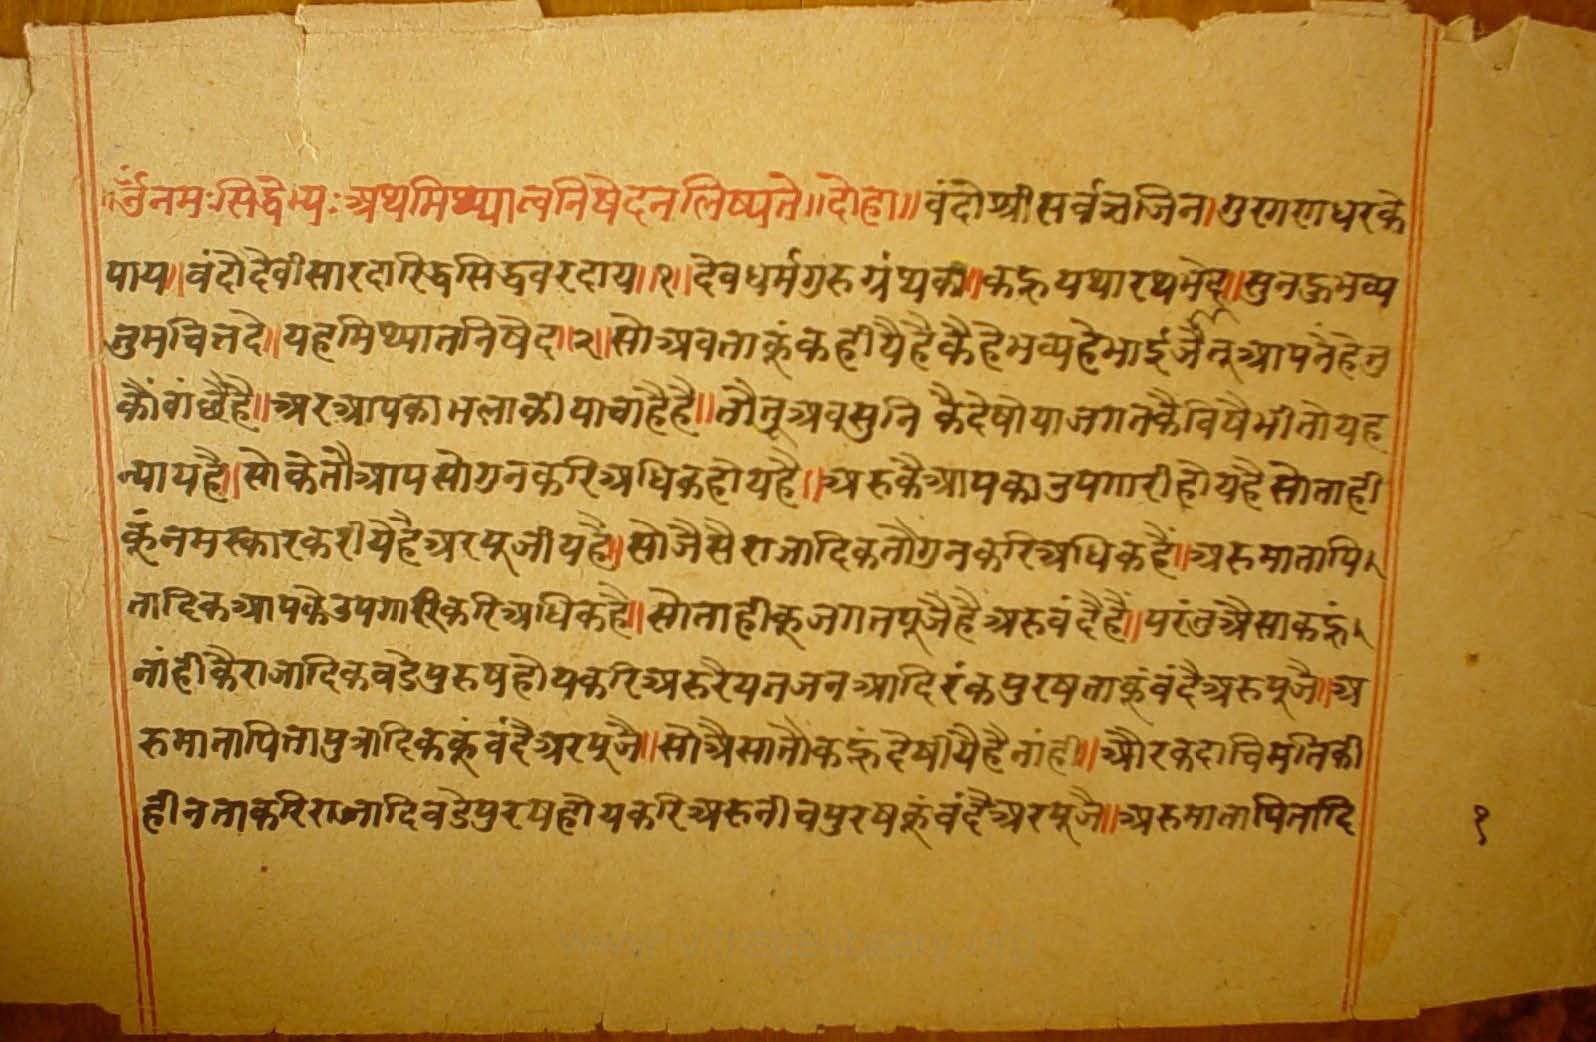 ॐनमःसिद्धेभ्यःअथमिथ्यात्वनिषेदनलिष्यते॥दोहा॥वंदोश्रीसर्वज्ञजिन।गुरगणधरके
पाय॥वंदौदेवीसारदारिद्धसिद्धवरदाय॥१॥देवधर्मगुरुग्रंथकौ॥कहुयथारथभेद॥सुनहुभव्य
तुमचित्तदे॥यहमिथ्यातनिषेद॥२॥सोअवताकूंकहीयैहैकैहेभव्यहेभाईजैतूआपनैहेतु
कौंवांछैहै॥अरआपकाभलाकीयाचाहैहै॥तौतूअवसुनिकैदेषोयाजगतकैविषैभीतोयह
न्यायहै॥सोकेतौआपसोगुनकरिअधिकहोयहै॥अरुकैआपकाउपगारीहोयहैसोताही
कूंनमस्कारकरीयेहैअरपूजीयहै॥सोजैसैराजादिकतौगुनकरिअधिकहैं॥अरुमातापि
तादिकआपकेउपगारीकरिअधिकहै॥सोताहीकूजगतपूजैहैअरुवंदैहैं॥परंतुअैसाकहूं
नांहीकैराजादिकवडेपुरुषहोयकरिअरुरैयतजनआदिरंकपुरषताकूंवंदैअरुपूजै॥अ
रुमातापितापुत्रादिककूंवंदैअरपूजै॥सोअैसातौकहूंदेषीयैहैनांही॥औरकदाचिमतिकी
हीनताकरिराजादिवडेपुरषहोयकरिअरुनीचपुरषकूंवंदैअरपूजै॥अरुमातापितादि
१